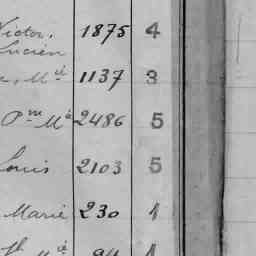 Victor, 1875 4
Lucien
Mel 1137 3
Pre Me 2486 5
Louis 2103 5
Marie 230 1